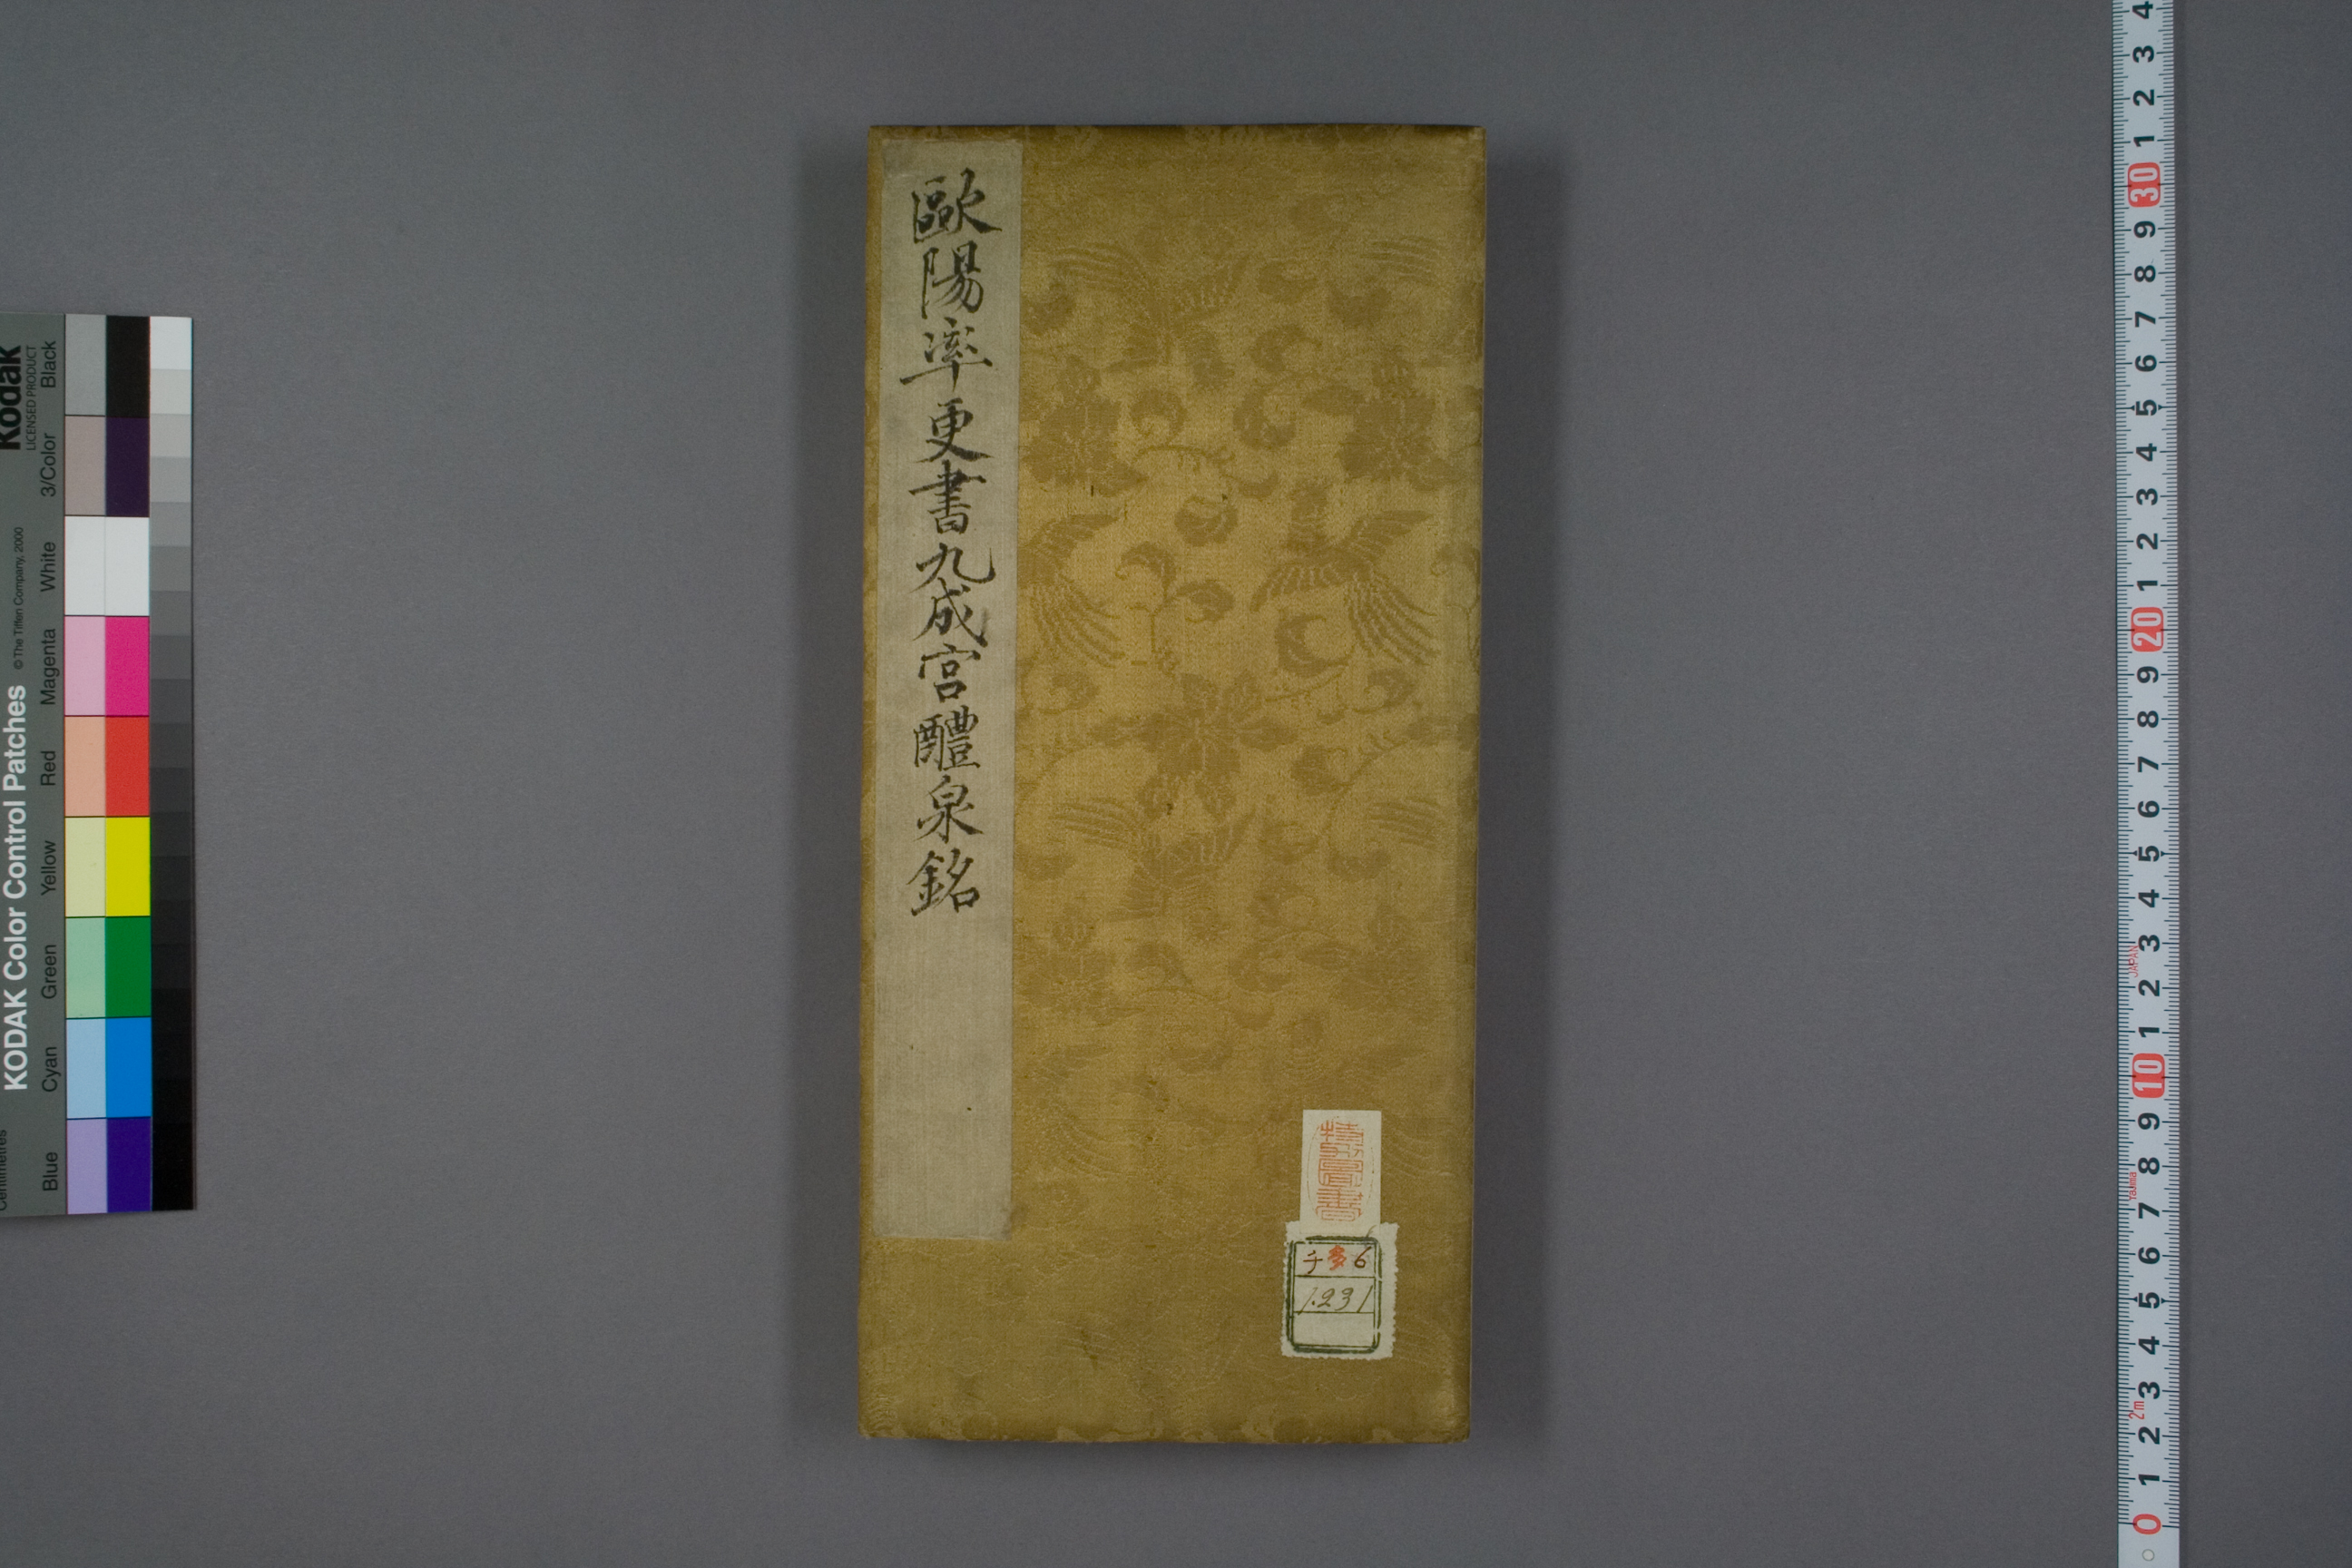 歐陽率更書九成宮醴泉銘
特別圖書
チ多6
1.231
Kodak
LICENSED PRODUCT
KODAK Color Control Patches
© The Tiffen Company, 2000
Blue Cyan Green Yellow Red Magenta White 3/Color Black
Centimetres
4
3
2
1
30
9
8
7
6
5
4
3
2
1
20
9
8
7
6
5
4
3
2
1
10
9
8
7
6
5
4
3
2
1
0
JAPAN
2m